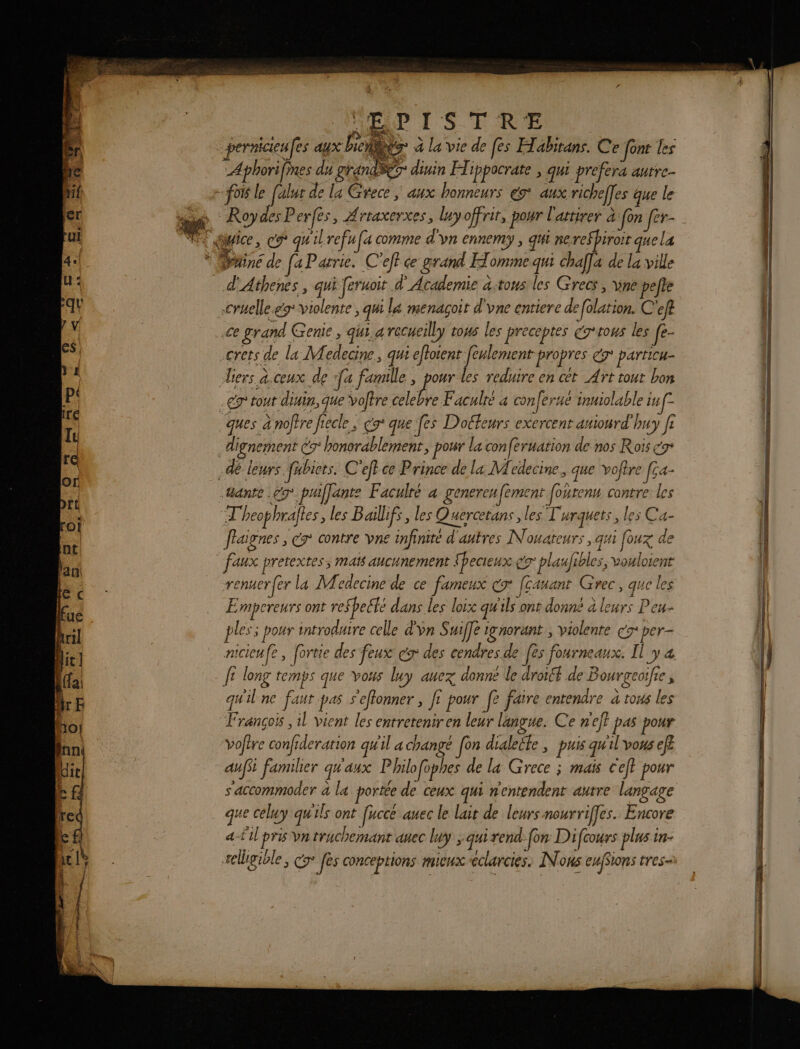 EPISTRE
pernicieuses aux biens & à la vie de ses Habitans. Ce sont les
Aphorismes du grand & diuin Hippocrate, qui prefera autre-
fois le salut de la Grece, aux honneurs & aux richesses que le
Roy des Perses, Artaxerxes, luy offrit, pour l'attirer à son ser-
uice, & qu'il refusa comme d'vn ennemy, qui ne respiroit que la
ruine de sa Patrie. C'est ce grand Homme qui chassa de la ville
d'Athenes, qui seruoit d'Academie à tous les Grecs, vne peste
cruelle & violente, qui la menaçoit d'vne entiere desolation. C'est
ce grand Genie, qui a recueilly tous les preceptes & tous les se-
crets de la Medecine, qui estoient seulement propres & particu-
liers à ceux de sa famille, pour les reduire en cét Art tout bon
& tout diuin, que vostre celebre Faculté a conserué inuiolable ius-
ques à nostre siecle, & que ses Docteurs exercent auiourd'huy si
dignement & honorablement, pour la conseruation de nos Rois &
de leurs subiets. C'est ce Prince de la Medecine, que vostre sça-
uante & puissante Faculté a genereusement soûtenu contre les
Theophrastes, les Baillifs, les Quercetans, les Turquets, les Ca-
staignes, & contre vne infinité d'autres Nouateurs, qui souz de
faux pretextes; mais aucunement specieux & plausibles, vouloient
renuerser la Medecine de ce fameux & sçauant Grec, que les
Empereurs ont respecté dans les loix qu'ils ont donné à leurs Peu-
ples; pour introduire celle d'vn Suisse ignorant, violente & per-
nicieuse, sortie des feux & des cendres de ses fourneaux. Il y a
si long temps que vous luy auez donné le droict de Bourgeoisie,
qu'il ne faut pas s'estonner, si pour se faire entendre à tous les
François, il vient les entretenir en leur langue. Ce n'est pas pour
vostre consideration qu'il a changé son dialecte, puis qu'il vous est
aussi familier qu'aux Philosophes de la Grece; mais c'est pour
s'accommoder à la portée de ceux qui n'entendent autre langage
que celuy qu'ils ont succé auec le lait de leurs nourrisses. Encore
a-t'il pris vn truchemant auec luy, qui rend son Discours plus in-
telligible, & ses conceptions mieux éclarcies. Nous eussions tres-